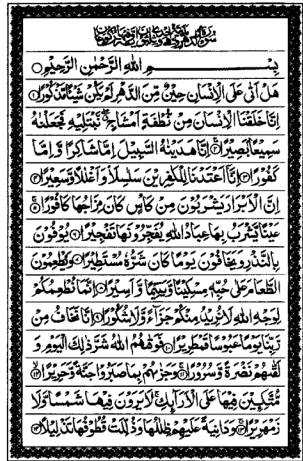 بِسْمِ اللهِ الرَّحْمٰنِ الرَّحِيْمِ
هَلْ اَتٰى عَلَى الْاِنْسَانِ حِيْنٌ مِّنَ الدَّهْرِ لَمْ يَكُنْ شَيْئًا مَّذْكُوْرًا ۝
اِنَّا خَلَقْنَا الْاِنْسَانَ مِنْ نُّطْفَةٍ اَمْشَاجٍ نَّبْتَلِيْهِ فَجَعَلْنٰهُ
سَمِيْعًا بَصِيْرًا ۝ اِنَّا هَدَيْنٰهُ السَّبِيْلَ اِمَّا شَاكِرًا وَّاِمَّا
كَفُوْرًا ۝ اِنَّا اَعْتَدْنَا لِلْكٰفِرِيْنَ سَلٰسِلَا وَاَغْلٰلًا وَّسَعِيْرًا ۝
اِنَّ الْاَبْرَارَ يَشْرَبُوْنَ مِنْ كَاْسٍ كَانَ مِزَاجُهَا كَافُوْرًا ۝
عَيْنًا يَّشْرَبُ بِهَا عِبَادُ اللهِ يُفَجِّرُوْنَهَا تَفْجِيْرًا ۝ يُوْفُوْنَ
بِالنَّذْرِ وَيَخَافُوْنَ يَوْمًا كَانَ شَرُّهٗ مُسْتَطِيْرًا ۝ وَيُطْعِمُوْنَ
الطَّعَامَ عَلٰى حُبِّهٖ مِسْكِيْنًا وَّيَتِيْمًا وَّاَسِيْرًا ۝ اِنَّمَا نُطْعِمُكُمْ
لِوَجْهِ اللهِ لَا نُرِيْدُ مِنْكُمْ جَزَآءً وَّلَا شُكُوْرًا ۝ اِنَّا نَخَافُ مِنْ
رَّبِّنَا يَوْمًا عَبُوْسًا قَمْطَرِيْرًا ۝ فَوَقٰىهُمُ اللهُ شَرَّ ذٰلِكَ الْيَوْمِ وَ
لَقّٰىهُمْ نَضْرَةً وَّسُرُوْرًا ۝ وَجَزٰىهُمْ بِمَا صَبَرُوْا جَنَّةً وَّحَرِيْرًا ۝
مُّتَّكِـِٕيْنَ فِيْهَا عَلَى الْاَرَآئِكِ لَا يَرَوْنَ فِيْهَا شَمْسًا وَّلَا
زَمْهَرِيْرًا ۝ وَدَانِيَةً عَلَيْهِمْ ظِلٰلُهَا وَذُلِّلَتْ قُطُوْفُهَا تَذْلِيْلًا ۝